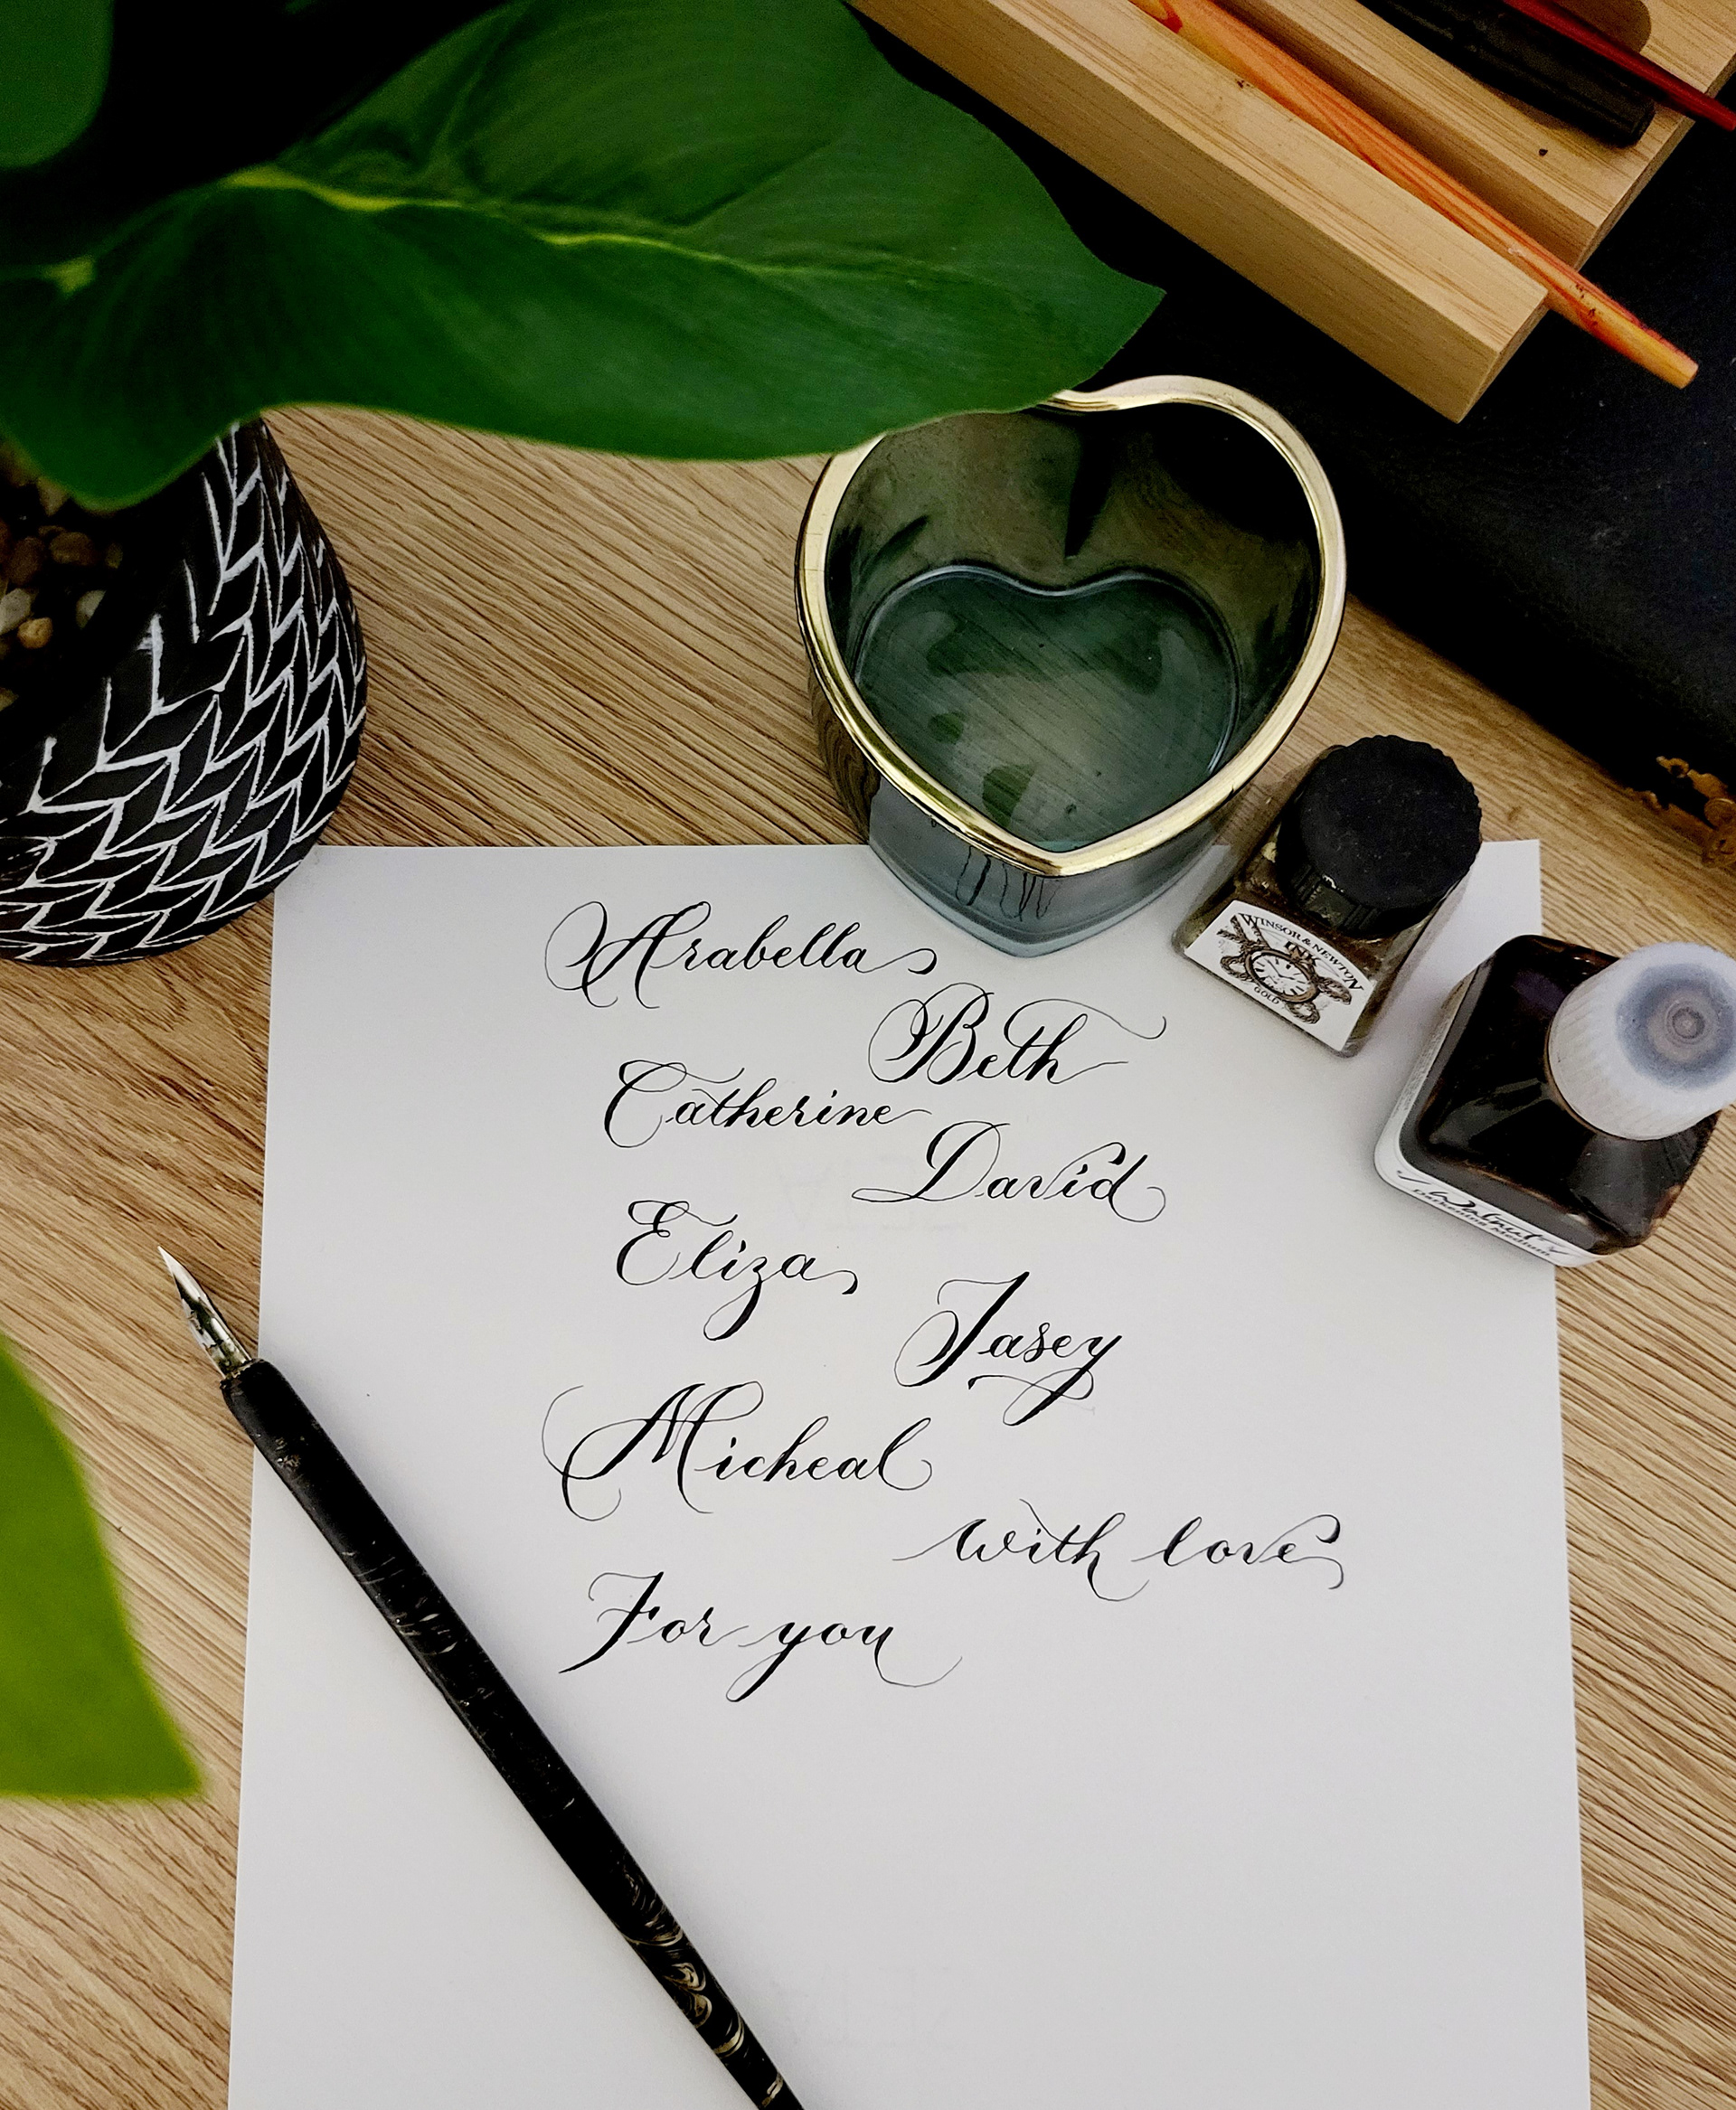 Arabella
Beth
Catherine
David
Eliza
Jasey
Micheal
with love
For you
WINSOR & NEWTON
INK
GOLD
Walnut